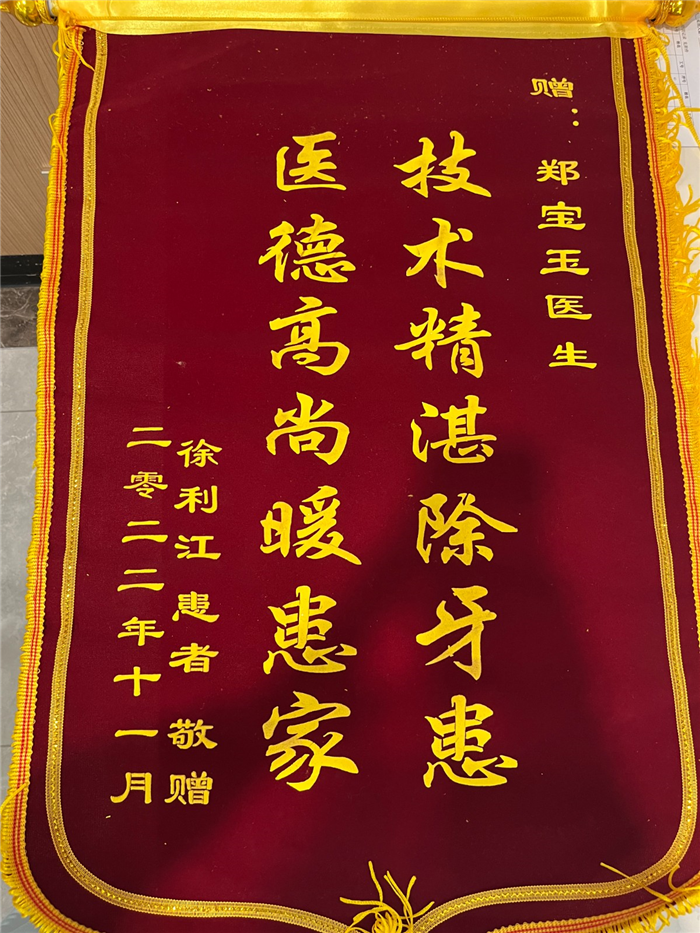 赠：郑宝玉医生
技术精湛除牙患
医德高尚暖患家
徐利江患者 敬赠
二零二二年十一月